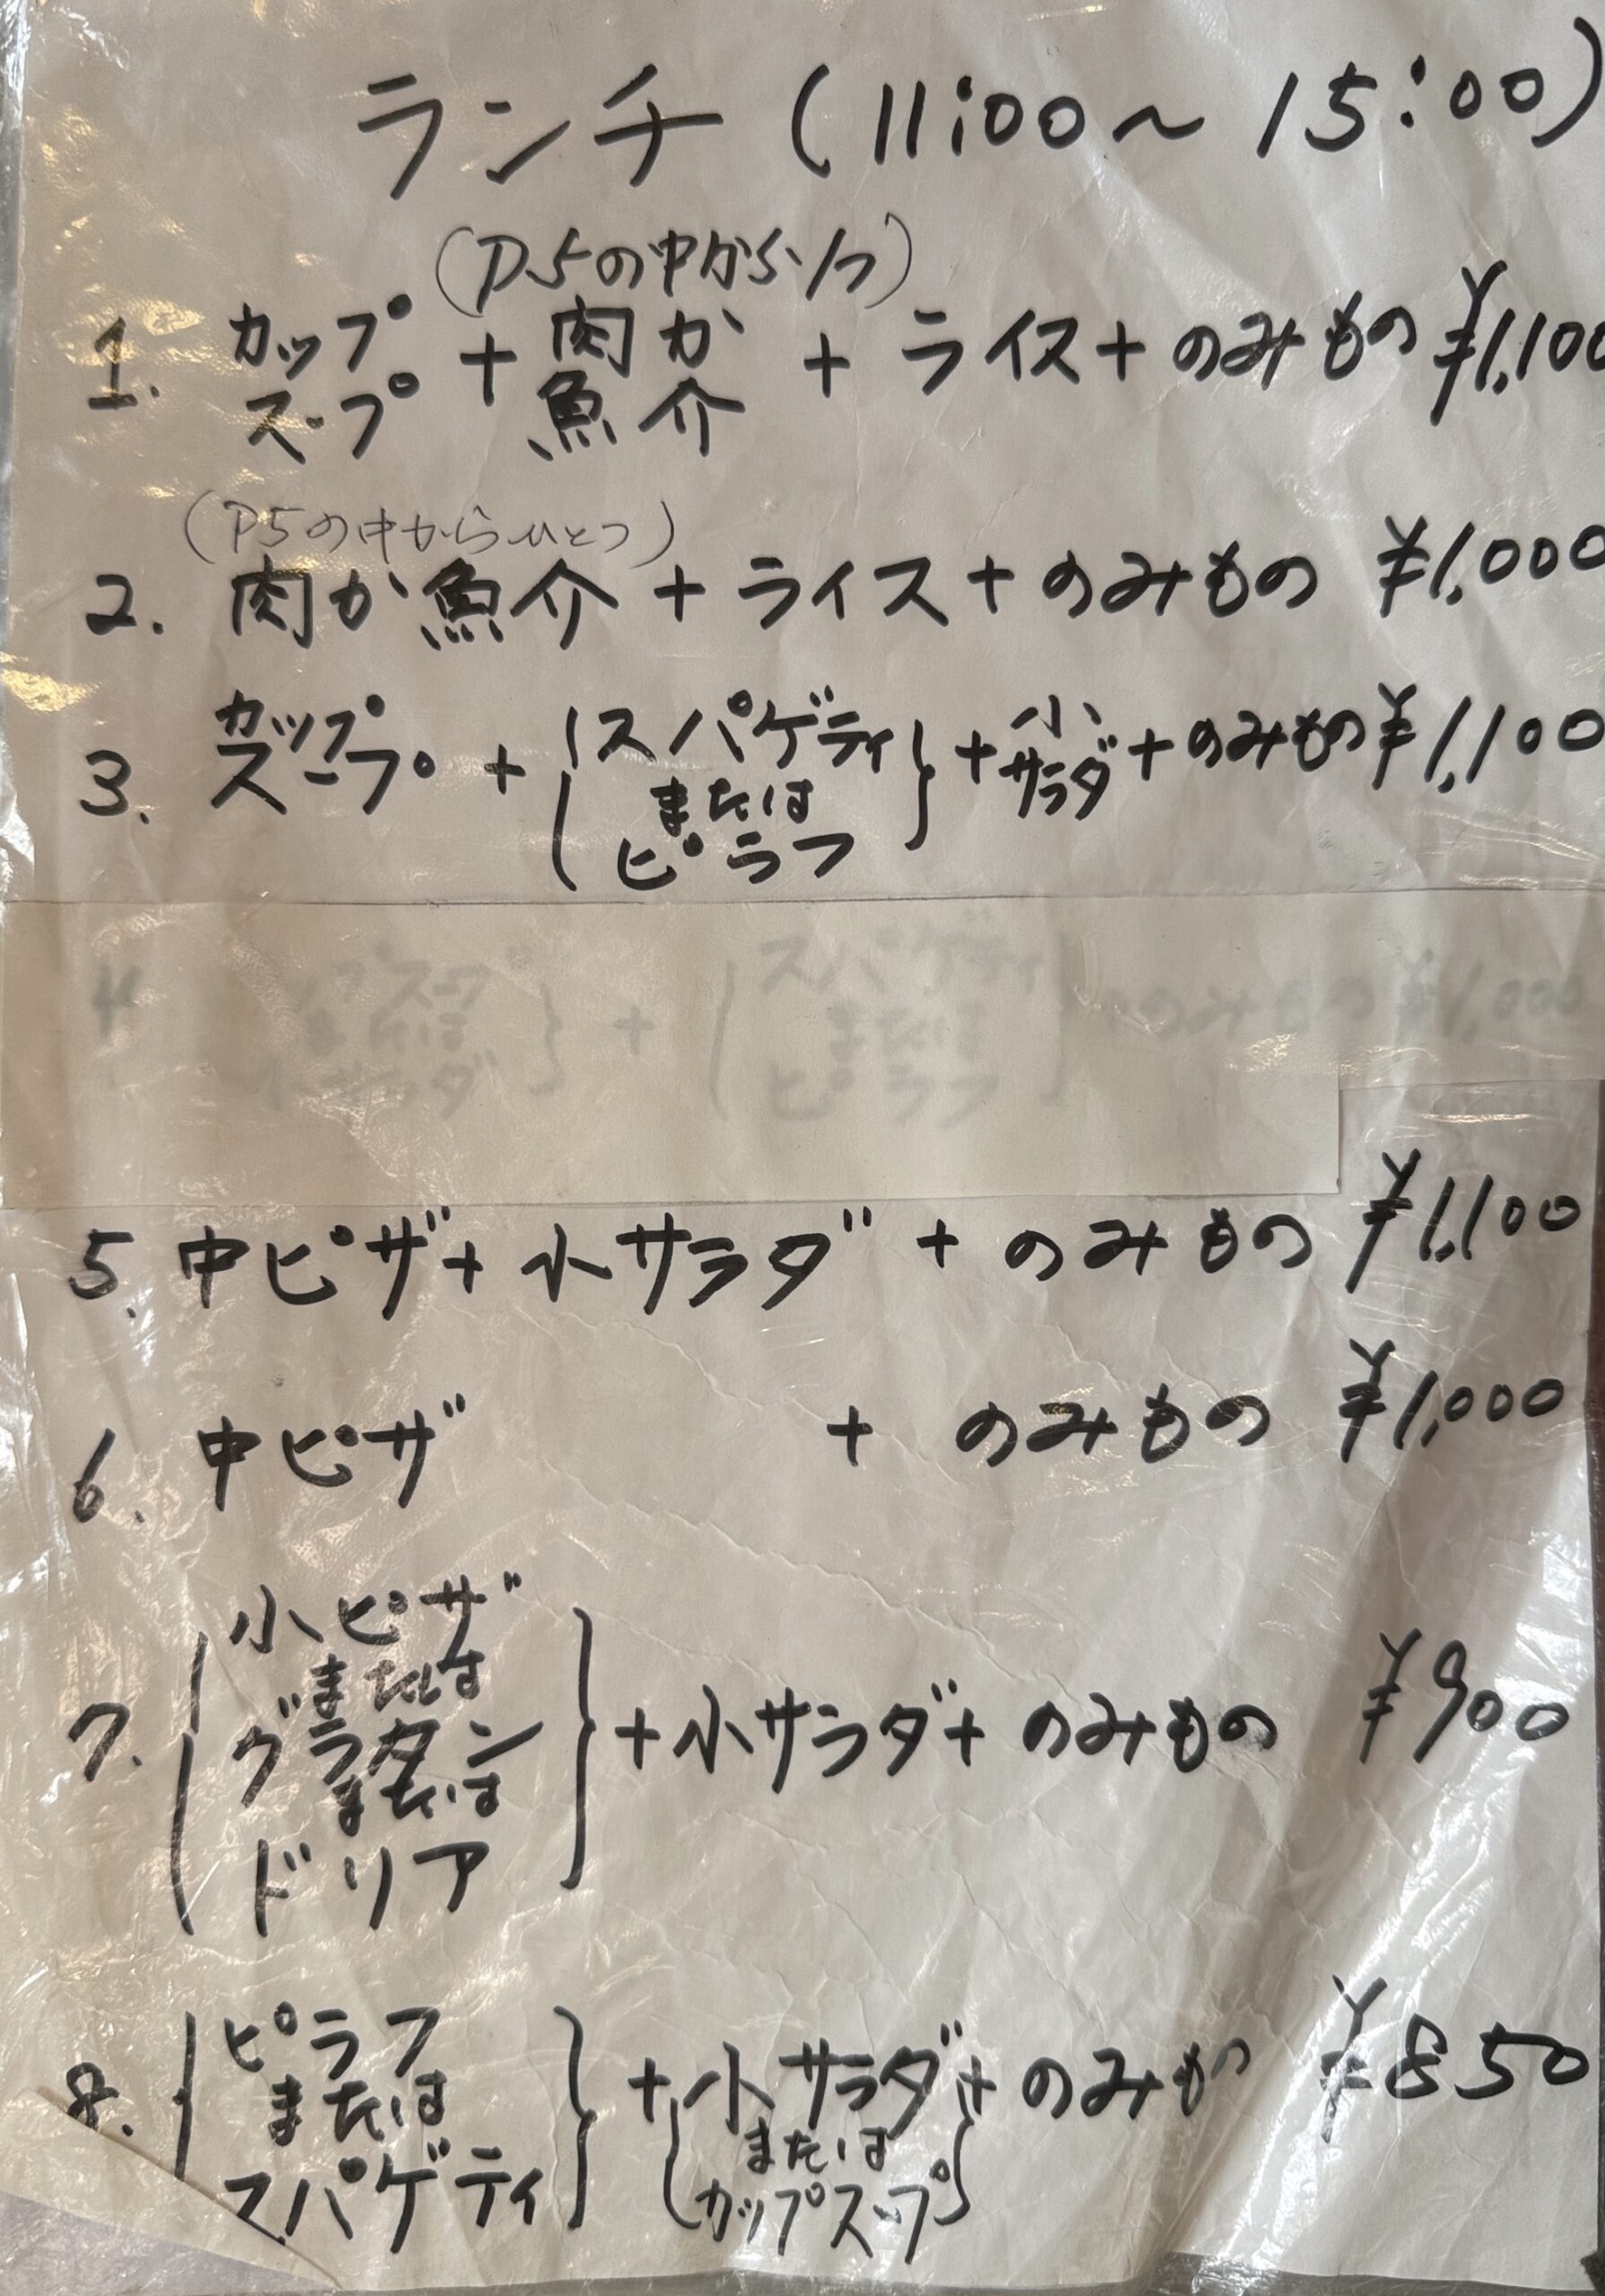 ランチ (11:00~15:00)
(P.5の中から1つ)
1. カップスープ + 肉か魚介 + ライス + のみもの ¥1,100
(P5の中からひとつ)
2. 肉か魚介 + ライス + のみもの ¥1,000
3. カップスープ + {スパゲティまたはピラフ} + 小サラダ + のみもの ¥1,100
4 カップスープまたは小サラダ} + {スパゲティまたはピラフ} + のみもの ¥1,000
5. 中ピザ + 小サラダ + のみもの ¥1,100
6. 中ピザ + のみもの ¥1,000
7. {小ピザまたはグラタンまたはドリア} + 小サラダ + のみもの ¥900
8. {ピラフまたはスパゲティ} + {小サラダまたはカップスープ} + のみもの ¥850